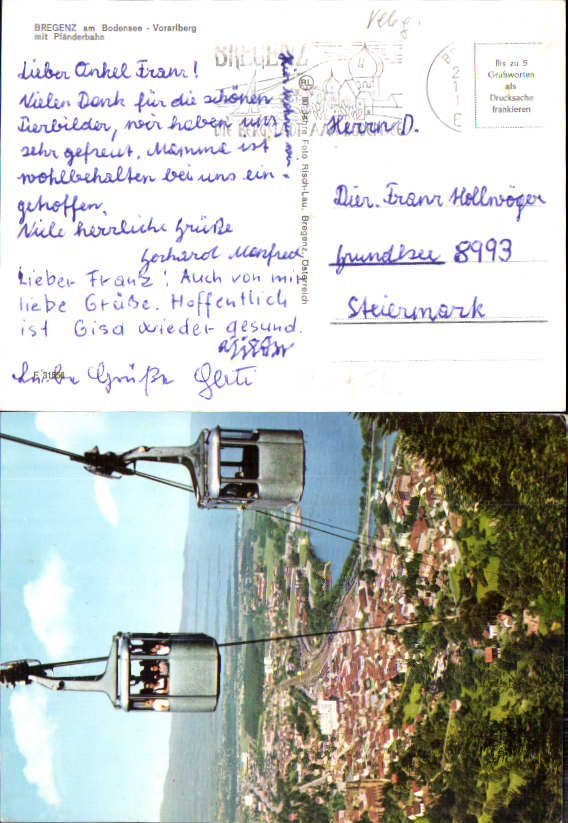 BREGENZ am Bodensee - Vorarlberg
mit Pfänderbahn
Lieber Onkel Franz!
Vielen Dank für die schönen
Tierbilder, wir haben uns
sehr gefreut. Mamma ist
wohlbehalten bei uns ein-
getroffen.
Viele herrliche Grüße
Gerhard Manfred
Lieber Franz! Auch von mir
liebe Grüße. Hoffentlich
ist Gisa wieder gesund.
Liebe Grüße Gerti
Hier wohnen wir
Foto Risch-Lau, Bregenz, Österreich
BREGENZ
Bis zu 5
Grußworten
als
Drucksache
frankieren
Herrn D.
Dier. Franz Hollwöger
Grundlsee 8993
Steiermark